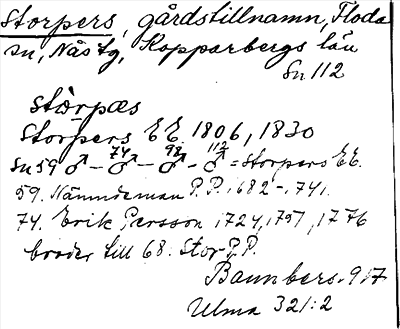 Storpers, gårdstillnamn, Floda
sn, Nås tg, Kopparbergs län
Sn 112
stòrpæs
Storpers EE 1806, 1830
Sn 59 ♂ – 74 ♂ – 98 ♂ – 112 ♂ = Storpers EE.
59. Nämndeman P.P. 1682-1741.
74. Erik Persson 1724, 1757, 1776
broder till 68. Stor P.P.
Bannbers. 917
Ulma 321:2